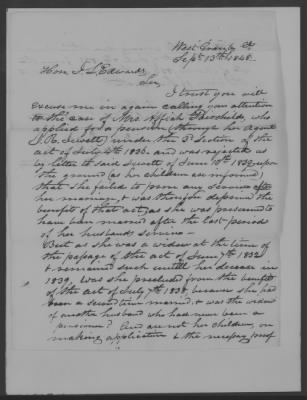 West Granby Ct
Sept 13th 1848.
Hon. J L Edwards
Sir,
I trust you will
excuse me in again calling your attention
to the case of Mrs Affiah who
applied for a pension (through her Agent
J. R. Jewett) under the 3d Section of the
act of July 4th 1836. and was rejected as
by letter to said Jewett of June 10th 1839, upon
the ground (as her children are informed)
that she failed to prove any service after
her marriage, & was therefore deprived the
benefit of that act, as she was presumed to
have been married after the last periods
of her husbands service—
But as she was a widow at the time of
the passage of the act of June 7th 1832
& remained such untill her decease in
1839, was she precluded from the benefit
of the act of July 7th 1838, because she had
been a second time married, & was the widow
of another husband who had never been a
pensioner? And are not her children, on
making application & the necessary proof